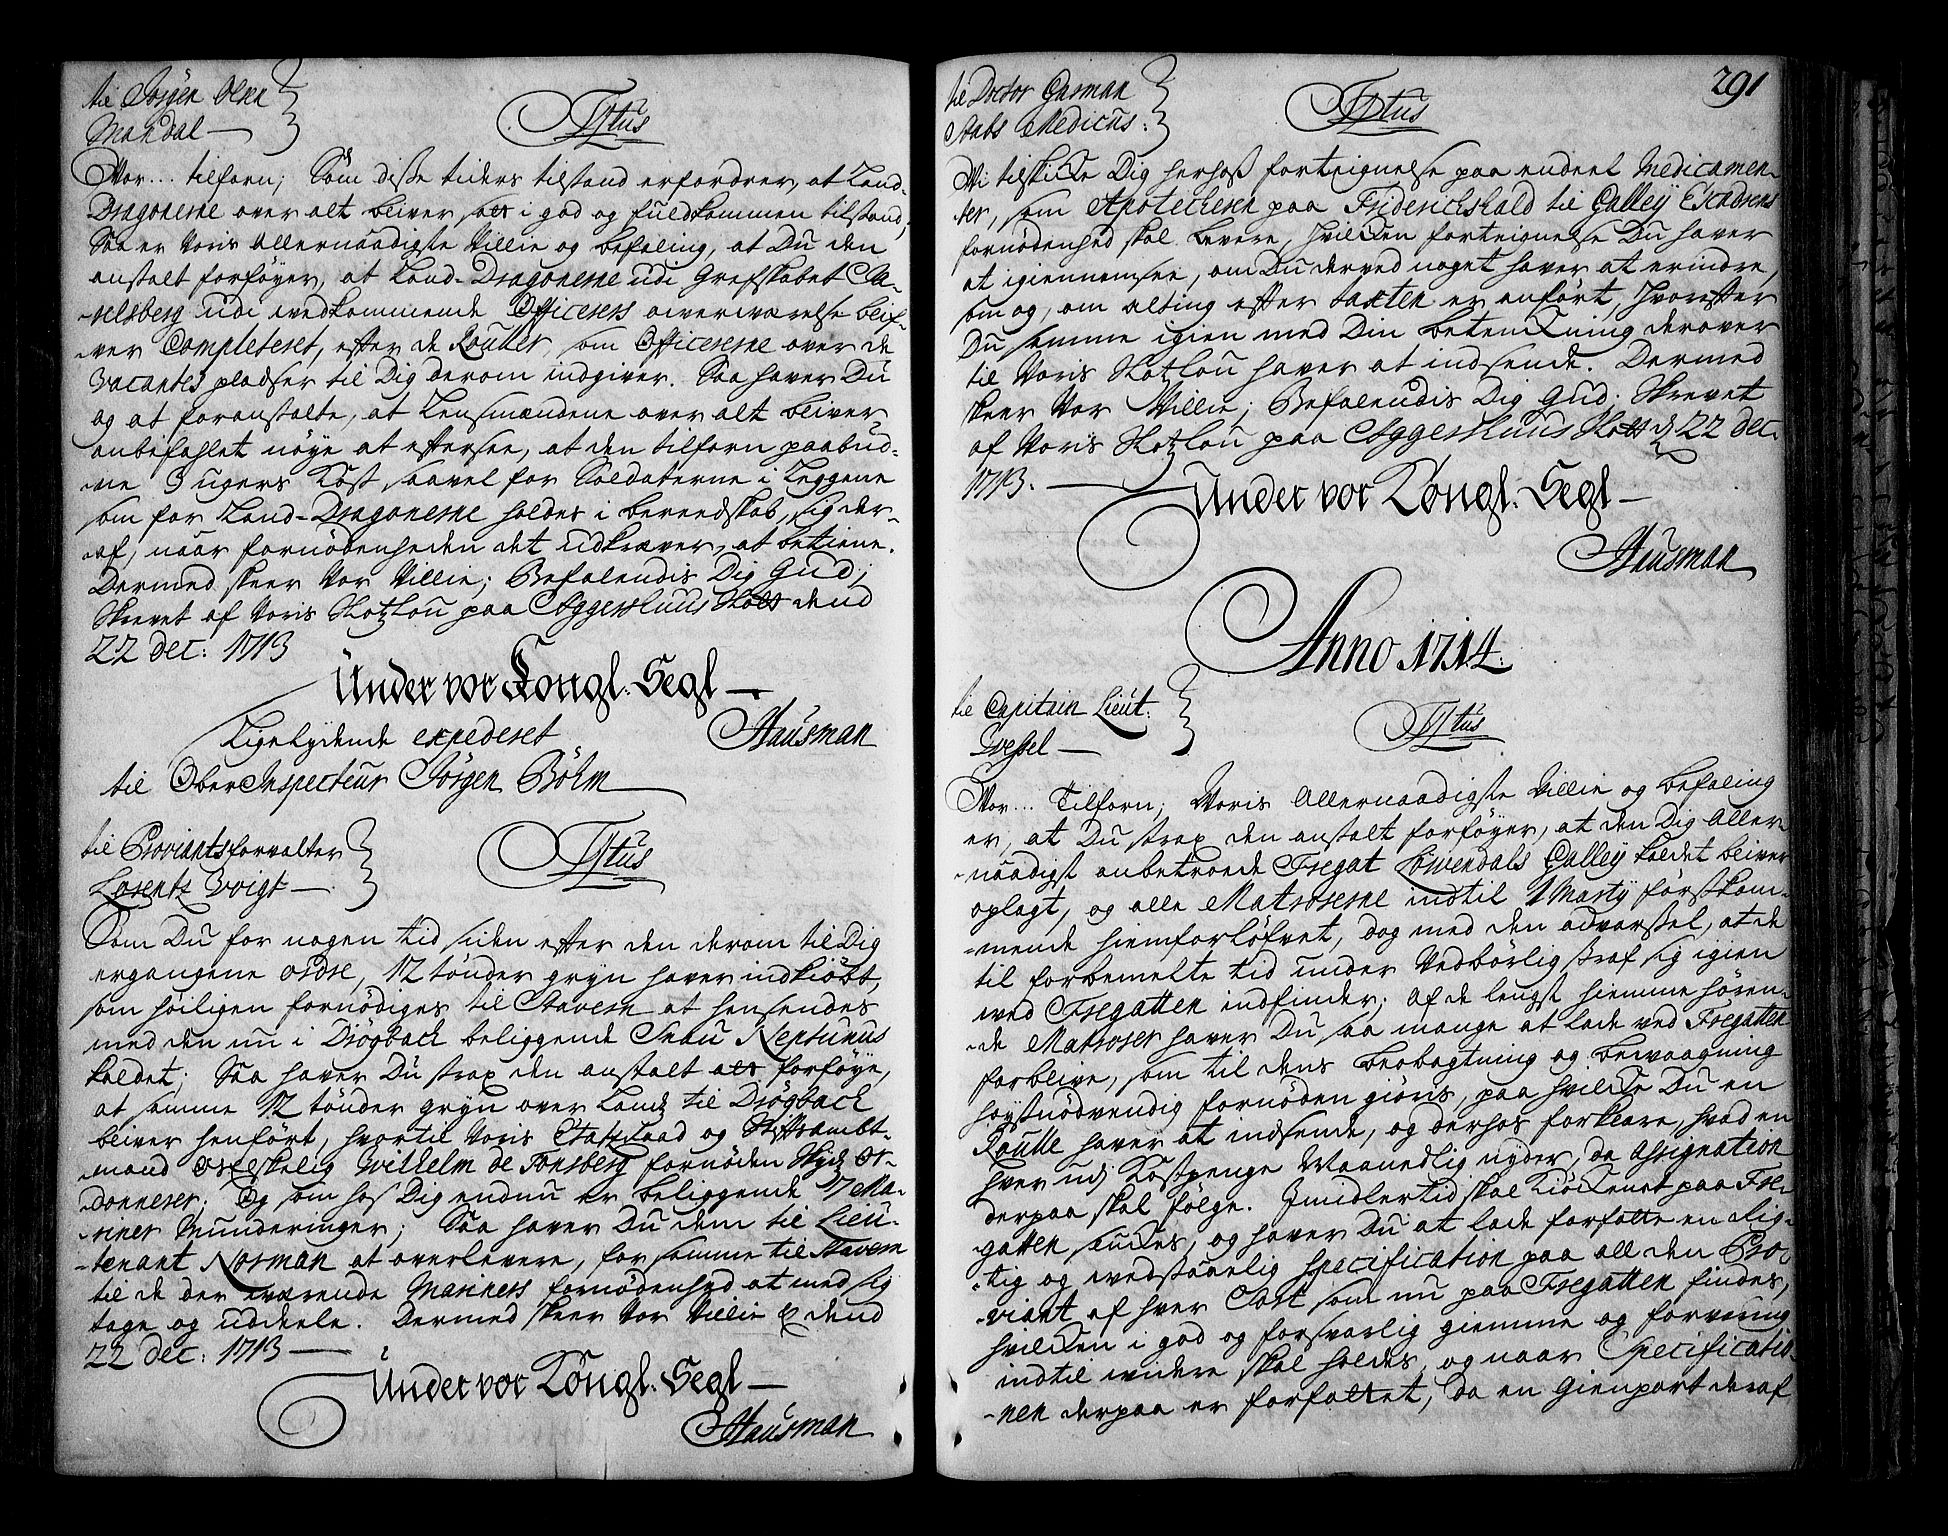 til Jörgen Olsen
Mandal —
Tytus
Vor... tilforn; Som disse tiders tilstand erfordrer, at Land-
Dragonerne over alt bliver sat i god og fuldkommen tilstand,
Saa er Voris Allernaadigste Villie og befaling, at Du den
anstalt forföyer, at Land-Dragonerne udi Grefskabet
udi wedkommende Officerers owerwærelse blif-
wer Completeret, efter de Roller, som Officererne over de
vacantes pladser til Dig derom indgiver. Saa haver Du
og at foranstalte, at Lensmændene over alt bliver
anbefahlet nöye at eftersee, at den tilforn paabud-
ne 3 ugers Kost saavel for Soldaterne i Leggene
som for Land-Dragonerne holdes i beredskab, sig der-
af, naar fornödenheden det udkræver, at betiene.
Dermed skeer Vor Villie; Befalendis Dig Gud;
Skrevet af Voris Slotzlou paa Aggershuus Slott dend
22 dec: 1713
Under vor Kongl. Segl —
Hausman
Ligelydende expederet
til Ober Inspecteur Jörgen Böhm
til Proviantsforvalter
Lorentz Voigt —
Tytus
Som Du for nogen tid siden efter den derom til Dig
ergangene ordre, 12 tönder gryn haver indkiöbt,
som höiligen fornödiges til Stavern at hensendes
med den nu i Dröback beliggende Snau Neptunus
kaldet; Saa haver Du strax den anstalt at forföye,
at samme 12 tönder gryn over Land til Dröback
bliver henfört, hvortil Voris Etatzraad og Stiftsambt-
mand Velskelig Wilhelm de Tonsberg fornöden Skydz or-
donnerer; Og som hos Dig endnu er beliggende 17 Ma-
riner Munderinger; Saa haver Du dem til Lieu-
tenant Norman at overlevere, for samme til Stavern
til de der wærende Mariners fornödenhed at med sig
tage og uddeele. Dermed skeer Vor Villie & dend
22 dec: 1713 —
Under vor Kongl. Segl —
Hausman
291
til Doctor Gasman
Stabs Medicus:
Tytus
Vi tilskicke Dig herhos forteignelse paa endeel Medicamen-
ter, som Apothecheren paa Friderichshald til Galley Escadrens
fornödenhed skal levere, hvilcken forteignelse Du haver
at igiennemsee, om Du derved noget haver at erindre,
som og, om alting efter taxten er anfört, hvorefter
Du samme igien med Din betenckning derover
til Voris Slotzlou haver at indsende. Dermed
skeer Vor Villie; Befalendis Dig Gud. Skrevet
af Voris Slotzlou paa Aggershuus Slott d 22 dec.
1713. —
Under vor Kongl. Segl —
Hausman
Anno 1714.
til Capitain Lieut:
Wessel —
Tytus
Vor... Tilforn; Voris Allernaadigste Villie og befaling
er, at Du strax den anstalt forföyer, at den Dig Aller-
naadigst anbetroede Fregat Löwendals Galley kaldet bliver
oplagt, og alle Matroserne indtil 1 Marty förstkom-
mende hiemforlöfvet, dog med den advarsel, at de
til forbemelte tid under vedbörlig straf sig igien
wed Fregatten indfinder; Af de lengst hiemme hören-
de Matroser haver Du saa mange at lade ved Fregatten
forblive, som til dens beobagtning og bewaagning
höystnödvendig fornöden giöris, paa hvilcke Du en
Roulle haver at indsende, og derhos forklare, hvad en
hver udj Kostpenge Maanedlig nyder, da Assignation
derpaa skal fölge. Imidlertid skal Kiöckenet paa Fre-
gatten , og haver Du at lade forfatte en rig-
tig og wedstaaelig specification paa all den Pro-
viant af hver Sort som nu paa Fregatten findes,
hvilcken i god og forsvarlig giemme og forvaring
indtil widere skal holdes, og naar Specificatio-
nen derpaa er forfattet, da en Gienpart deraf